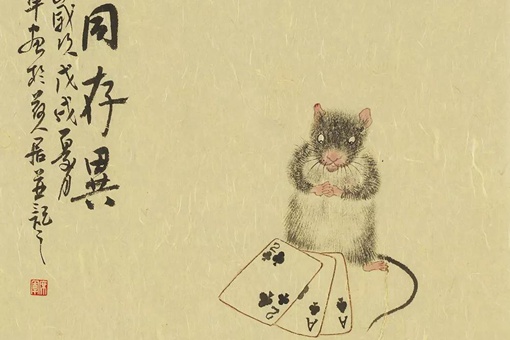 同存異
歲次戊戌夏月
畫於居並記之
2
2
A
A